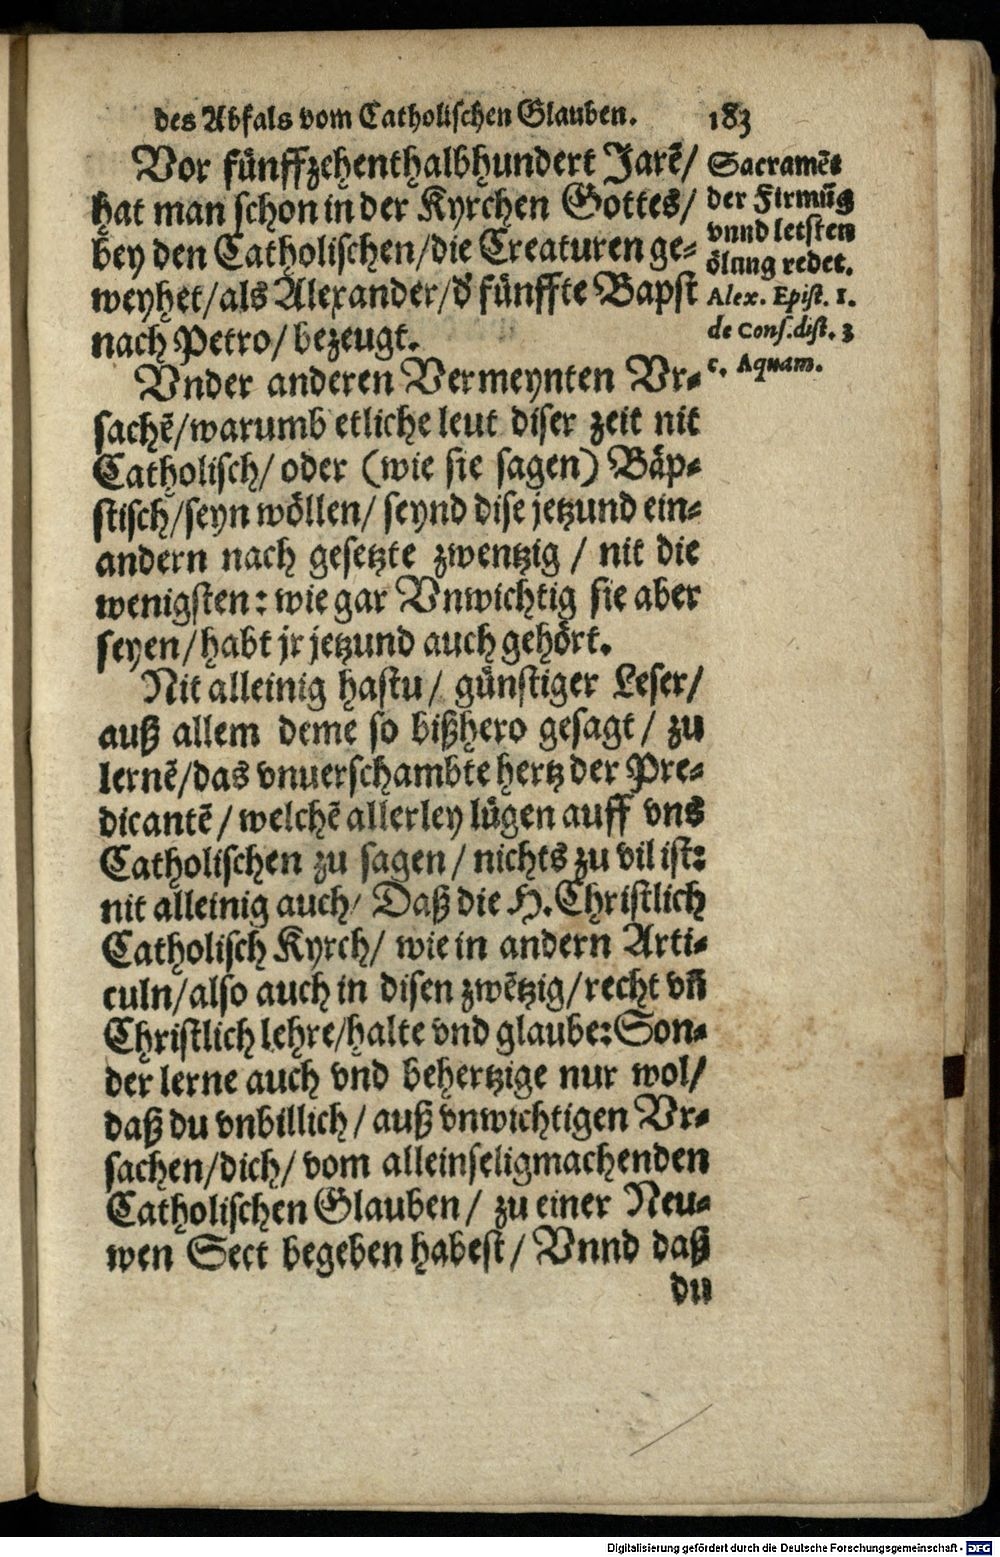 des Abfals vom Catholischen Glauben. 183
Vor fünffzehenthalbhundert Jarē/
hat man schon in der Kyrchen Gottes/
bey den Catholischen/die Creaturen ge-
weyhet/als Alexander/d̕ fünffte Bapst
nach Petro/bezeugt.
Vnder anderen Vermeynten Vr-
sachē/warumb etliche leut diser zeit nit
Catholisch/oder (wie sie sagen) Bäp-
stisch/seyn wöllen/seynd dise jetzund ein-
andern nach gesetzte zwentzig/nit die
wenigsten: wie gar Vnwichtig sie aber
seyen/habt jr jetzund auch gehört.
Nit alleinig hastu/günstiger Leser/
auß allem deme so bißhero gesagt/zu
lernē/das vnuerschambte hertz der Pre-
dicantē/welchē allerley lügen auff vns
Catholischen zu sagen/nichts zu vil ist:
nit alleinig auch/Daß die H. Christlich
Catholisch Kyrch/wie in andern Arti-
culn/also auch in disen zwētzig/recht vn̄
Christlich lehre/halte vnd glaube: Son-
der lerne auch vnd behertzige nur wol/
daß du vnbillich/auß vnwichtigen Vr-
sachen/dich/vom alleinseligmachenden
Catholischen Glauben/zu einer Neu-
wen Sect begeben habest/Vnnd daß
du
Sacramēt
der Firmūg
vnnd letsten
ölung redet.
Alex. Epist. 1.
de Cons. dist. 3
c. Aquam.
Digitalisierung gefördert durch die Deutsche Forschungsgemeinschaft - DFG